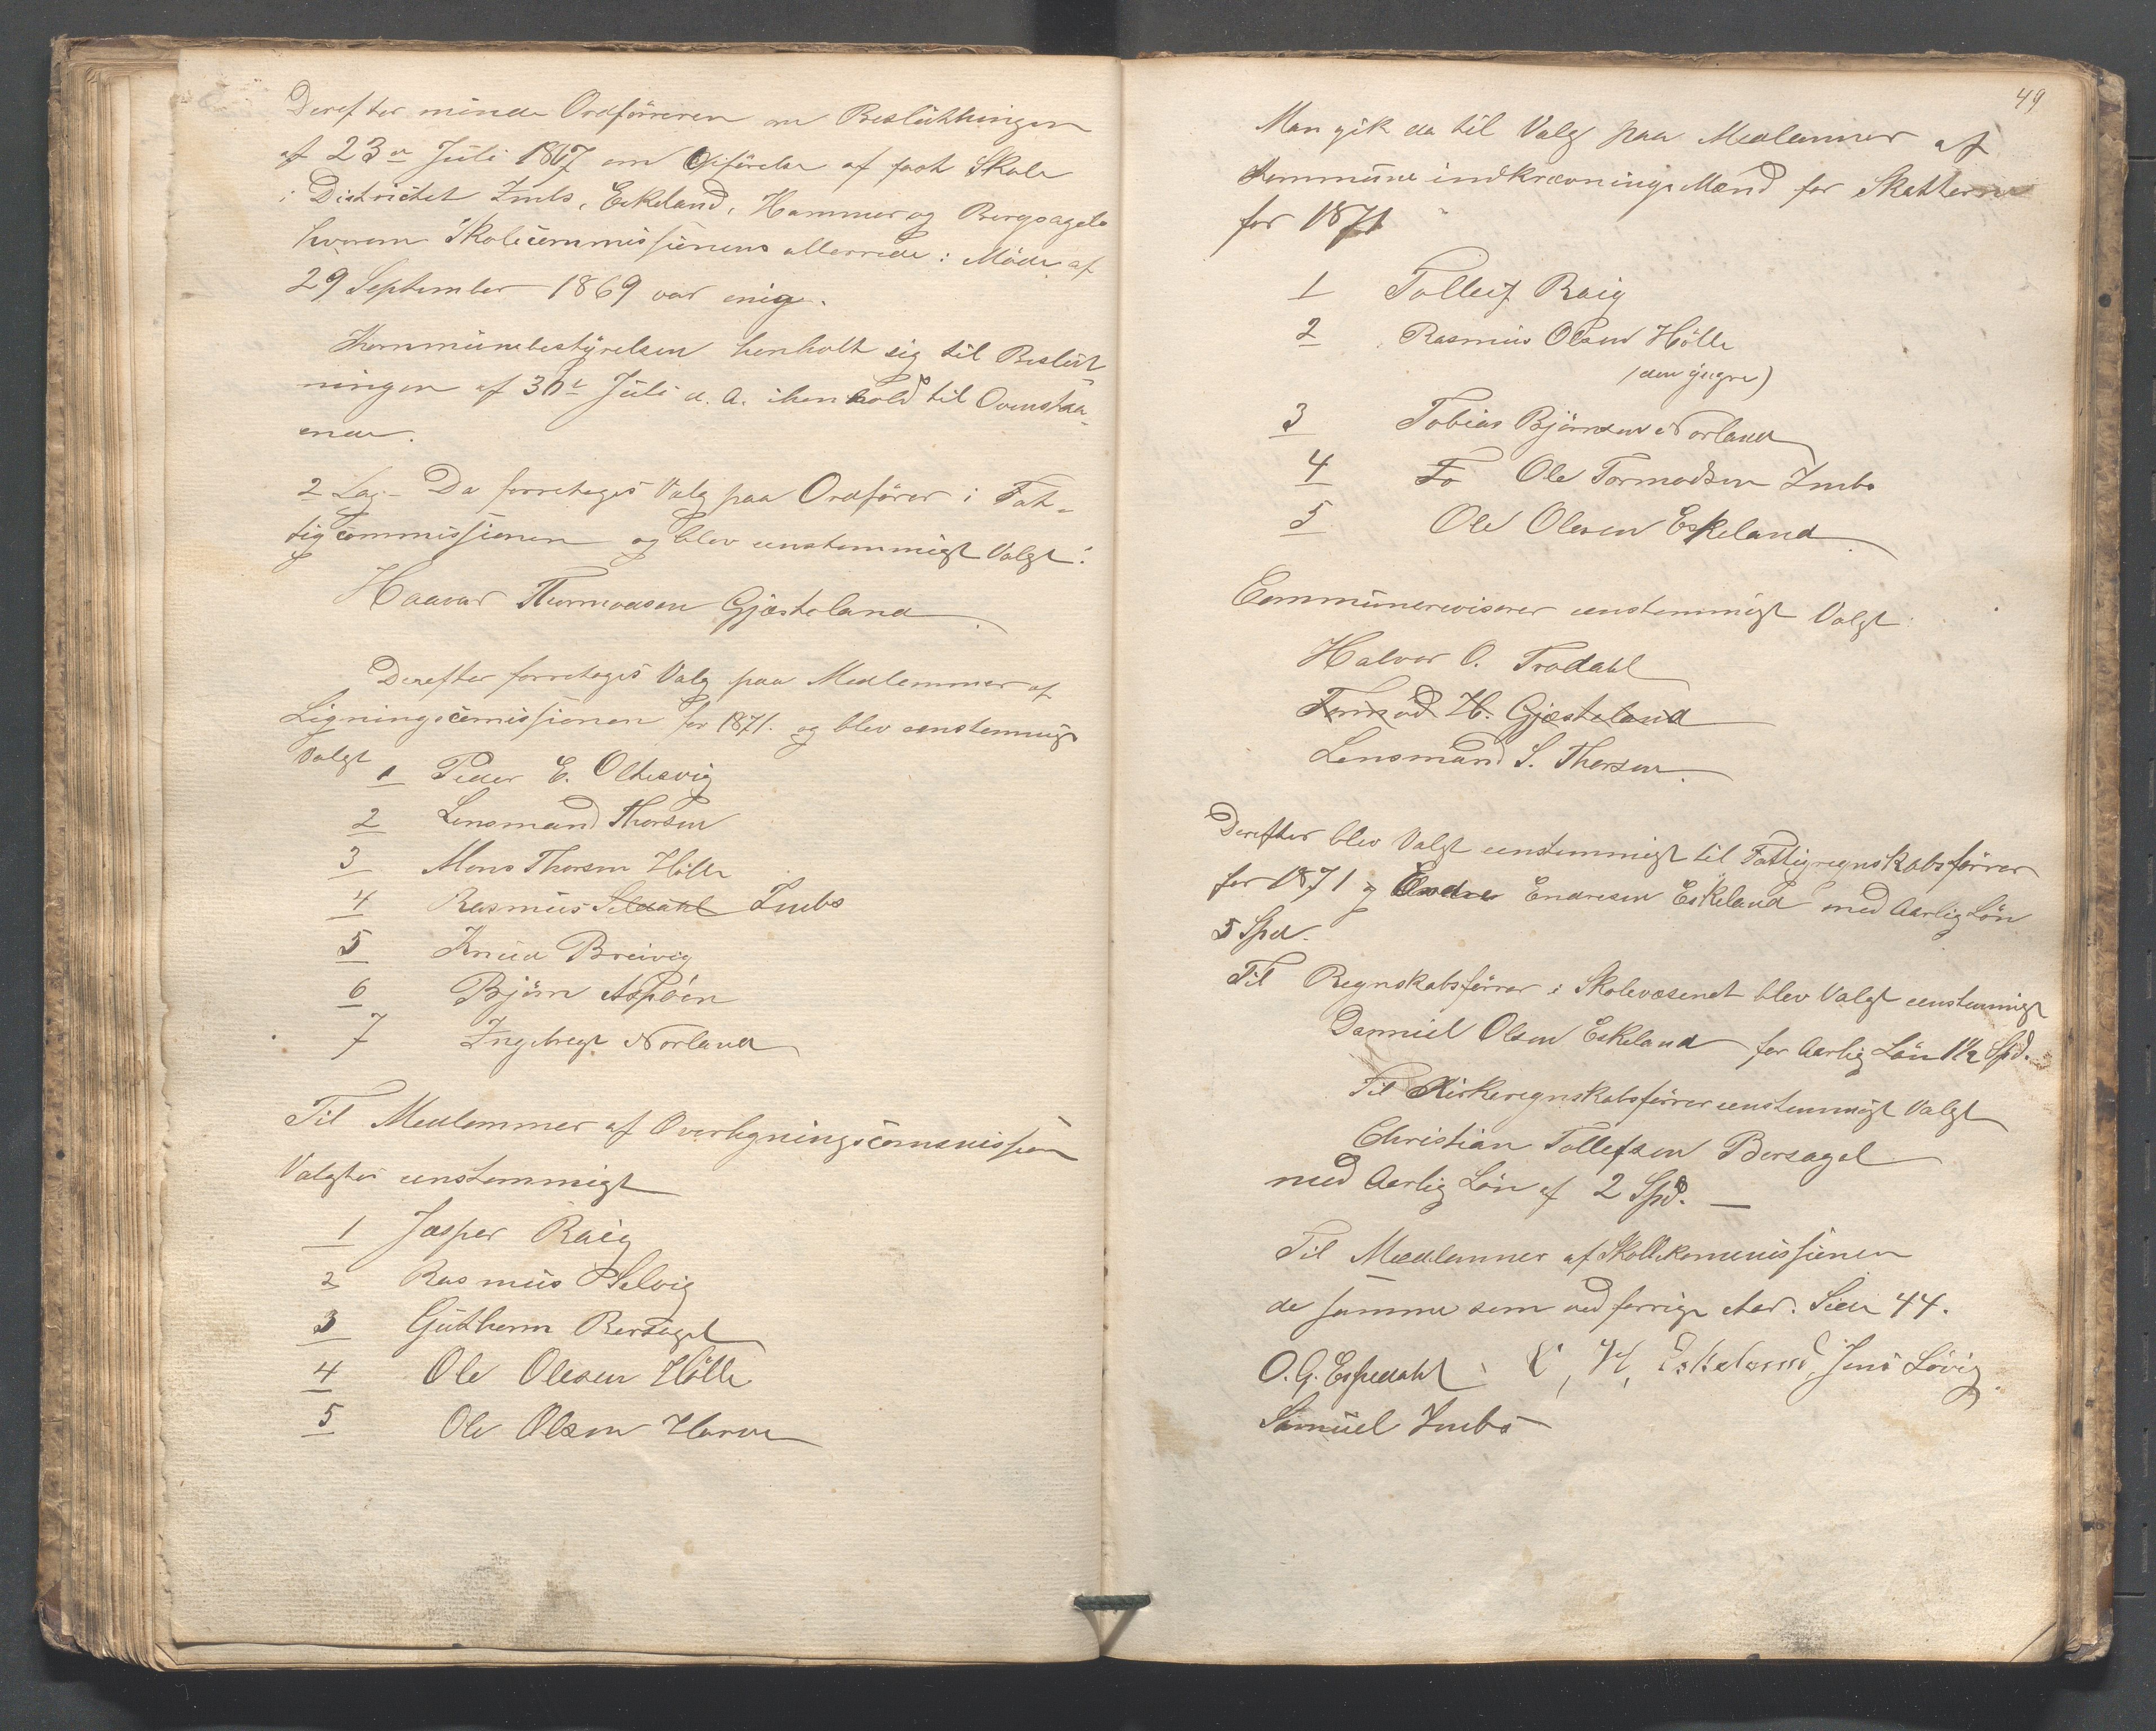 Derefter minde Ordføreren om Beslutningen
af 23de Juli 1867 om Opførelse af fast Skole
i Districtet Imbs, Eskeland, Hammer og Bergsagels
hvorom Skolecommissionens allerrede i Møde af
29 September 1869 var enig.
Kommunebestyrelsen henholt sig til Beslut-
ningen af 30te Juli d. A. ihenhold til Ovenstaa-
ende.
2 Lag - Da forretoges Valg paa Ordfører i Fat-
tigcommissionen og blev eenstemmigt Valgt:
Haavar Thormodsen Gjæsteland.
Derefter forretoges Valg paa Medlemmer af
Ligningscomissionen for 1871. og blev eenstemmigt
Valgt
1 Peder E. Oltesvig
2 Lensmand Thorsen
3 Mons Thorsen Hölle
4 Rasmus Seldahl Imbs
5 Knud Breivig
6 Björn Aspöen
7 Ingebregt Norland
Til Medlemmer af Overligningscommission
Valgtes eenstemmigt
1 Jasper Raig
2 Rasmus Selvig
3 Guthorm Bersagel
4 Ole Olesen Hölle
5 Ole Olsen
49
Man gik da til Valg paa Medlemmer af
Kommune indkrævnings Mænd for Skatterne
for 1871
1 Tolleif Raig
2 Rasmus Olsen Hölle
(den yngre)
3 Tobias Björnsen Norland
4 To Ole Tormodsen Imbs
5 Ole Olesen Eskeland.
Communerevisorer eenstemmigt Valgt
Halvor O. Trodahl
Tormod H. Gjæsteland
Lensmand S. Thorsen.
Derefter blev Valgt eenstemmigt til Fattigregnskabsfører
for 1871 Endre Endresen Eskeland med Aarlig Lön
5 Spd.
Til Regnskabsförer i Skolevæsenet blev Valgt eenstemmigt
Danniel Olsen Eskeland for Aarlig Lön 1½ Spd.
Til Kirkeregnskabsförer eenstemmigt Valgt
Christian Tollefsen Bersagel
med Aarlig Lön af 2 Spd. —
Til Medlemmer af Skolekommissionen
de samme som ved forrige Aar. Side 44.
O. G. Espedahl H. Eskeland, Jens Lövig.
Samuel Imbs